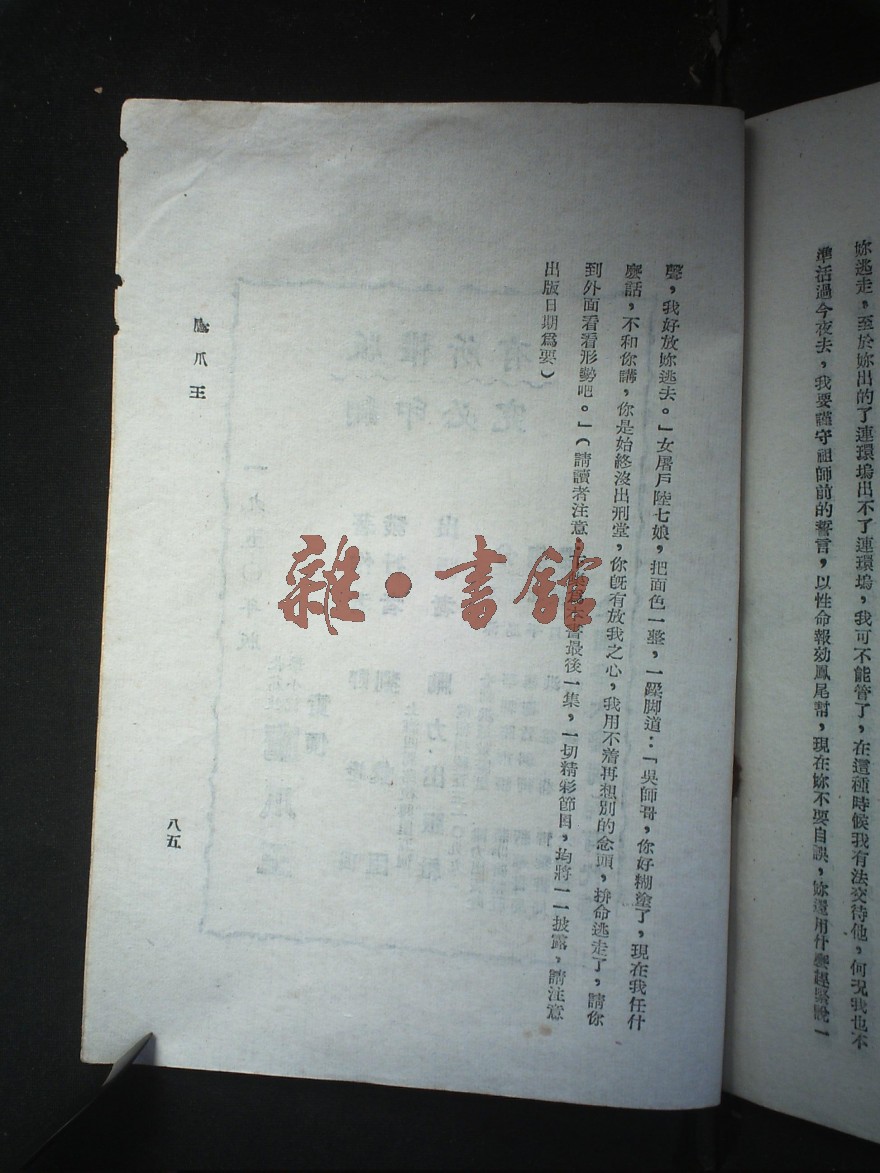 妳逃走，至於妳出的了連環塢出不了連環塢，我可不能管了，在這種時候我有法交待他，何況我也不
準活過今夜去，我要謹守祖師前的誓言，以性命報効鳳尾幫，現在妳不要自誤，妳還用什麼趕緊說一
聲，我好放妳逃去。」女屠戶陸七娘，把面色一整，一跺脚道：「吳師哥，你好糊塗了，現在我任什
麼話，不和你講，你是始終沒出刑堂，你旣有放我之心，我用不着再想別的念頭，拚命逃走了，請你
到外面看看形勢吧。」（請讀者注意，下集爲本書最後一集，一切精彩節目，均將一一披露，請注意
出版日期爲要）
鷹爪王
八五
雜·書館